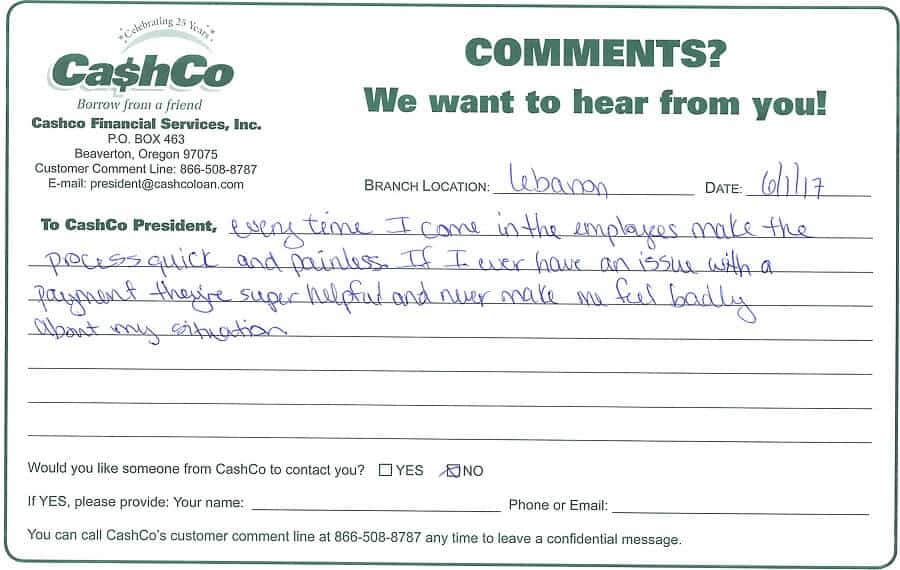 *Celebrating 25 Years*
Ca$hCo
Borrow from a friend
Cashco Financial Services, Inc.
P.O. BOX 463
Beaverton, Oregon 97075
Customer Comment Line: 866-508-8787
E-mail: president@cashcoloan.com
COMMENTS?
We want to hear from you!
BRANCH LOCATION: Lebanon DATE: 6/1/17
To CashCo President, every time I come in the employees make the
process quick and painless. If I ever have an issue with a
payment they're super helpful and never make me feel badly
about my situation
Would you like someone from CashCo to contact you? YES NO
If YES, please provide: Your name: Phone or Email:
You can call CashCo's customer comment line at 866-508-8787 any time to leave a confidential message.